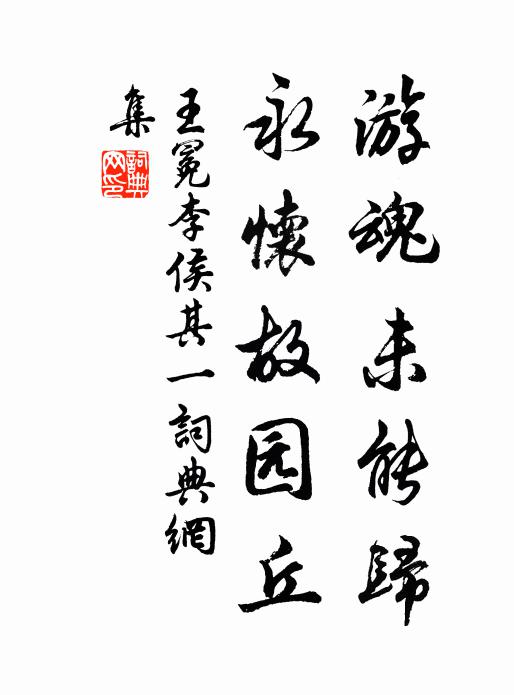 游魂未能歸
永懷故园丘
王冕李侯其一詞典網
集
詞典網印